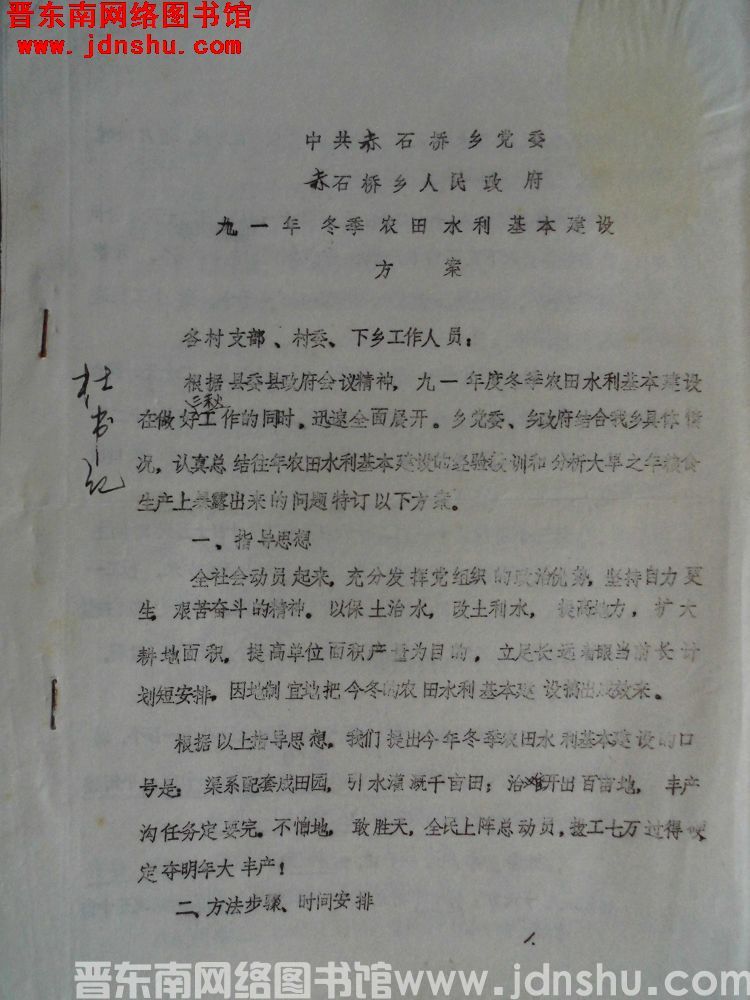 晋东南网络图书馆
www.jdnshu.com
中共赤石桥乡党委
赤石桥乡人民政府
九一年冬季农田水利基本建设
方案
各村支部、村委、下乡工作人员:
根据县委县政府会议精神,九一年度冬季农田水利基本建设
在做好三秋工作的同时。迅速全面展开。乡党委、乡政府结合我乡具体情
况,认真总结往年农田水利基本建设的经验教训和分析大旱之年粮食
生产上暴露出来的问题特订以下方案。
一、指导思想
全社会动员起来,充分发挥党组织的政治优势,坚持自力更
生,艰苦奋斗的精神。以保土治水,改土利水,提高地力,扩大
耕地面积,提高单位面积产量为目的,立足长远着眼当前长计
划短安排,因地制宜地把今冬的农田水利基本建设搞出成效来。
根据以上指导思想。我们提出今年冬季农田水利基本建设的口
号是:渠系配套成田园,引水灌溉千亩田;治滩开出百亩地,丰产
沟任务定要完。不怕地,敢胜天,全民上阵总动员,投工七万过得硬
定夺明年大丰产!
二、方法步骤、时间安排
1.
杜书记
晋东南网络图书馆www.jdnshu.com